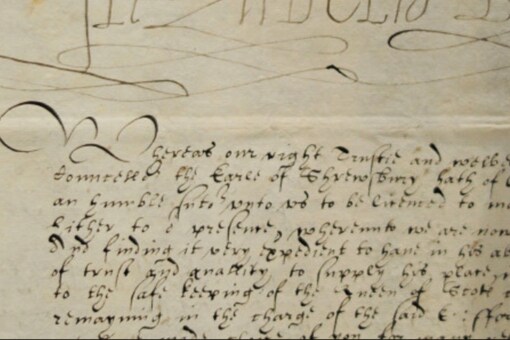 Whereas our right Trustie and welbe
Councello the Earle of Shrewsbury hath of l
an humble sute unto us to be licenced to
hither to o presence, whereunto we are
And finding it very expedient to have in his ab
of trust and quallity to supply his place,
to the safe keeping of the Queen of Scots
remayning in the charge of the said E: of
of you for many